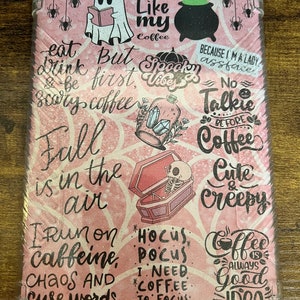 Like
my
Coffee
eat
drink
& be
scary
But
first,
coffee
BECAUSE I'M A LADY
assface.
No
Talkie
BEFORE
Coffee
Fall
is in the
air
Cute
&
Creepy
I RUN ON
caffeine,
CHAOS AND
curse words
HOCUS,
POCUS
I NEED
COFFEE
TO FOCUS
Coffee
IS
ALWAYS
Good